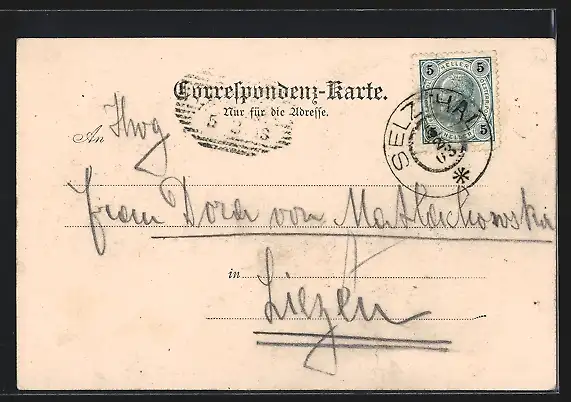 Correspondenz-Karte.
Nur für die Adresse.
5 HELLER 5
5 5
SELZTHAL
03
An
Frau Dora von Matlachowska
in
Liezen